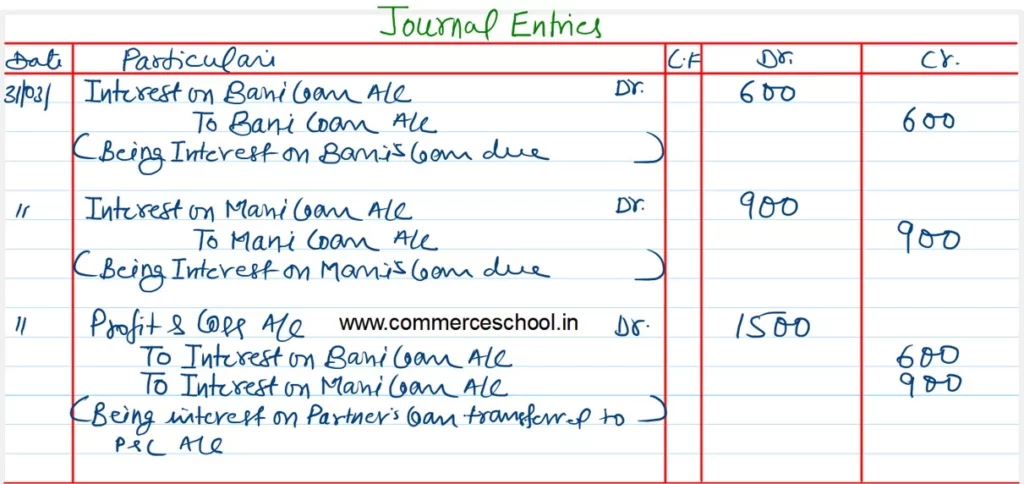 Journal Entries
Date Particulars C.F Dr. Cr.
31/03/ Interest on Bani Loan A/C Dr. 600
To Bani Loan A/C 600
(Being Interest on Bani's Loan due)
11 Interest on Mani Loan A/C Dr. 900
To Mani Loan A/C 900
(Being Interest on Mani's Loan due)
11 Profit & Loss A/C www.commerceschool.in Dr. 1500
To Interest on Bani Loan A/C 600
To Interest on Mani Loan A/C 900
(Being interest on Partner's Loan transferred to)
P&L A/C